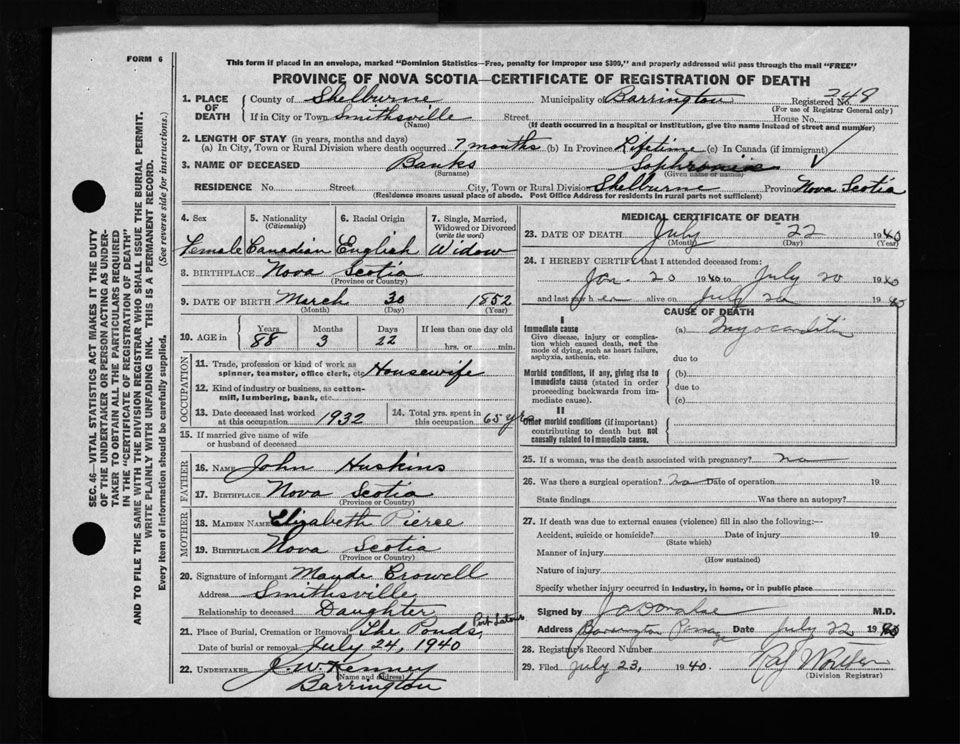 FORM 6
This form if placed in an envelope, marked "Dominion Statistics—Free, penalty for improper use $300," and properly addressed will pass through the mail "FREE"
PROVINCE OF NOVA SCOTIA—CERTIFICATE OF REGISTRATION OF DEATH
1. PLACE OF DEATH County of Shelburne Municipality of Barrington Registered No. 248
(For use of Registrar General only)
If in City or Town Smithsville Street House No.
(Name) (If death occurred in a hospital or institution, give the name instead of street and number)
2. LENGTH OF STAY (in years, months and days)
(a) In City, Town or Rural Division where death occurred 7 months (b) In Province Lifetime (c) In Canada (if immigrant)
3. NAME OF DECEASED Banks Sophronia
(Surname) (Given name or names)
RESIDENCE No. Street City, Town or Rural Division Shelburne Province Nova Scotia
(Residence means usual place of abode. Post Office Address for residents in rural parts not sufficient)
4. Sex 5. Nationality 6. Racial Origin 7. Single, Married,
(Citizenship) Widowed or Divorced
(write the word)
Female Canadian English Widow
8. BIRTHPLACE Nova Scotia
(Province or Country)
9. DATE OF BIRTH March 30 1852
(Month) (Day) (Year)
10. AGE in Years Months Days If less than one day old
88 3 22 hrs. or min.
OCCUPATION
11. Trade, profession or kind of work as
spinner, teamster, office clerk, etc. Housewife
12. Kind of industry or business, as cotton-
mill, lumbering, bank, etc.
13. Date deceased last worked
at this occupation 1932
14. Total yrs. spent in
this occupation 65 yrs
15. If married give name of wife
or husband of deceased
FATHER
16. NAME John Huskins
17. BIRTHPLACE Nova Scotia
(Province or Country)
MOTHER
18. MAIDEN NAME Elizabeth Pierce
19. BIRTHPLACE Nova Scotia
(Province or Country)
20. Signature of informant Mayde Crowell
Address Smithsville
Relationship to deceased Daughter
21. Place of Burial, Cremation or Removal The Ponds, Port Latour
Date of burial or removal July 24, 1940
22. UNDERTAKER J. W. Kenney
(Name and address)
Barrington
MEDICAL CERTIFICATE OF DEATH
23. DATE OF DEATH July 22 1940
(Month) (Day) (Year)
24. I HEREBY CERTIFY that I attended deceased from:
Jan. 20 1940 to July 20 1940
and last saw her alive on July 20 1940
CAUSE OF DEATH
I
Immediate cause (a) Myocarditis
Give disease, injury or complica-
tion which caused death, not the
mode of dying, such as heart failure,
asphyxia, asthenia, etc.
due to
Morbid conditions, if any, giving rise to (b)
immediate cause (stated in order due to
proceeding backwards from im-
mediate cause). (c)
II
Other morbid conditions (if important)
contributing to death but not
causally related to immediate cause.
25. If a woman, was the death associated with pregnancy? no
26. Was there a surgical operation? no Date of operation 19
State findings Was there an autopsy?
27. If death was due to external causes (violence) fill in also the following:—
Accident, suicide or homicide? Date of injury 19
(State which)
Manner of injury
(How sustained)
Nature of injury
Specify whether injury occurred in industry, in home, or in public place
Signed by M.D.
Address Barrington Passage Date July 22 1940
28. Registrar's Record Number
29. Filed July 23, 1940.
(Division Registrar)
SEC. 46—VITAL STATISTICS ACT MAKES IT THE DUTY
OF THE UNDERTAKER OR PERSON ACTING AS UNDER-
TAKER TO OBTAIN ALL THE PARTICULARS REQUIRED
IN THE "CERTIFICATE OF REGISTRATION OF DEATH"
AND TO FILE THE SAME WITH THE DIVISION REGISTRAR WHO SHALL ISSUE THE BURIAL PERMIT.
WRITE PLAINLY WITH UNFADING INK. THIS IS A PERMANENT RECORD.
Every item of information should be carefully supplied. (See reverse side for instructions.)